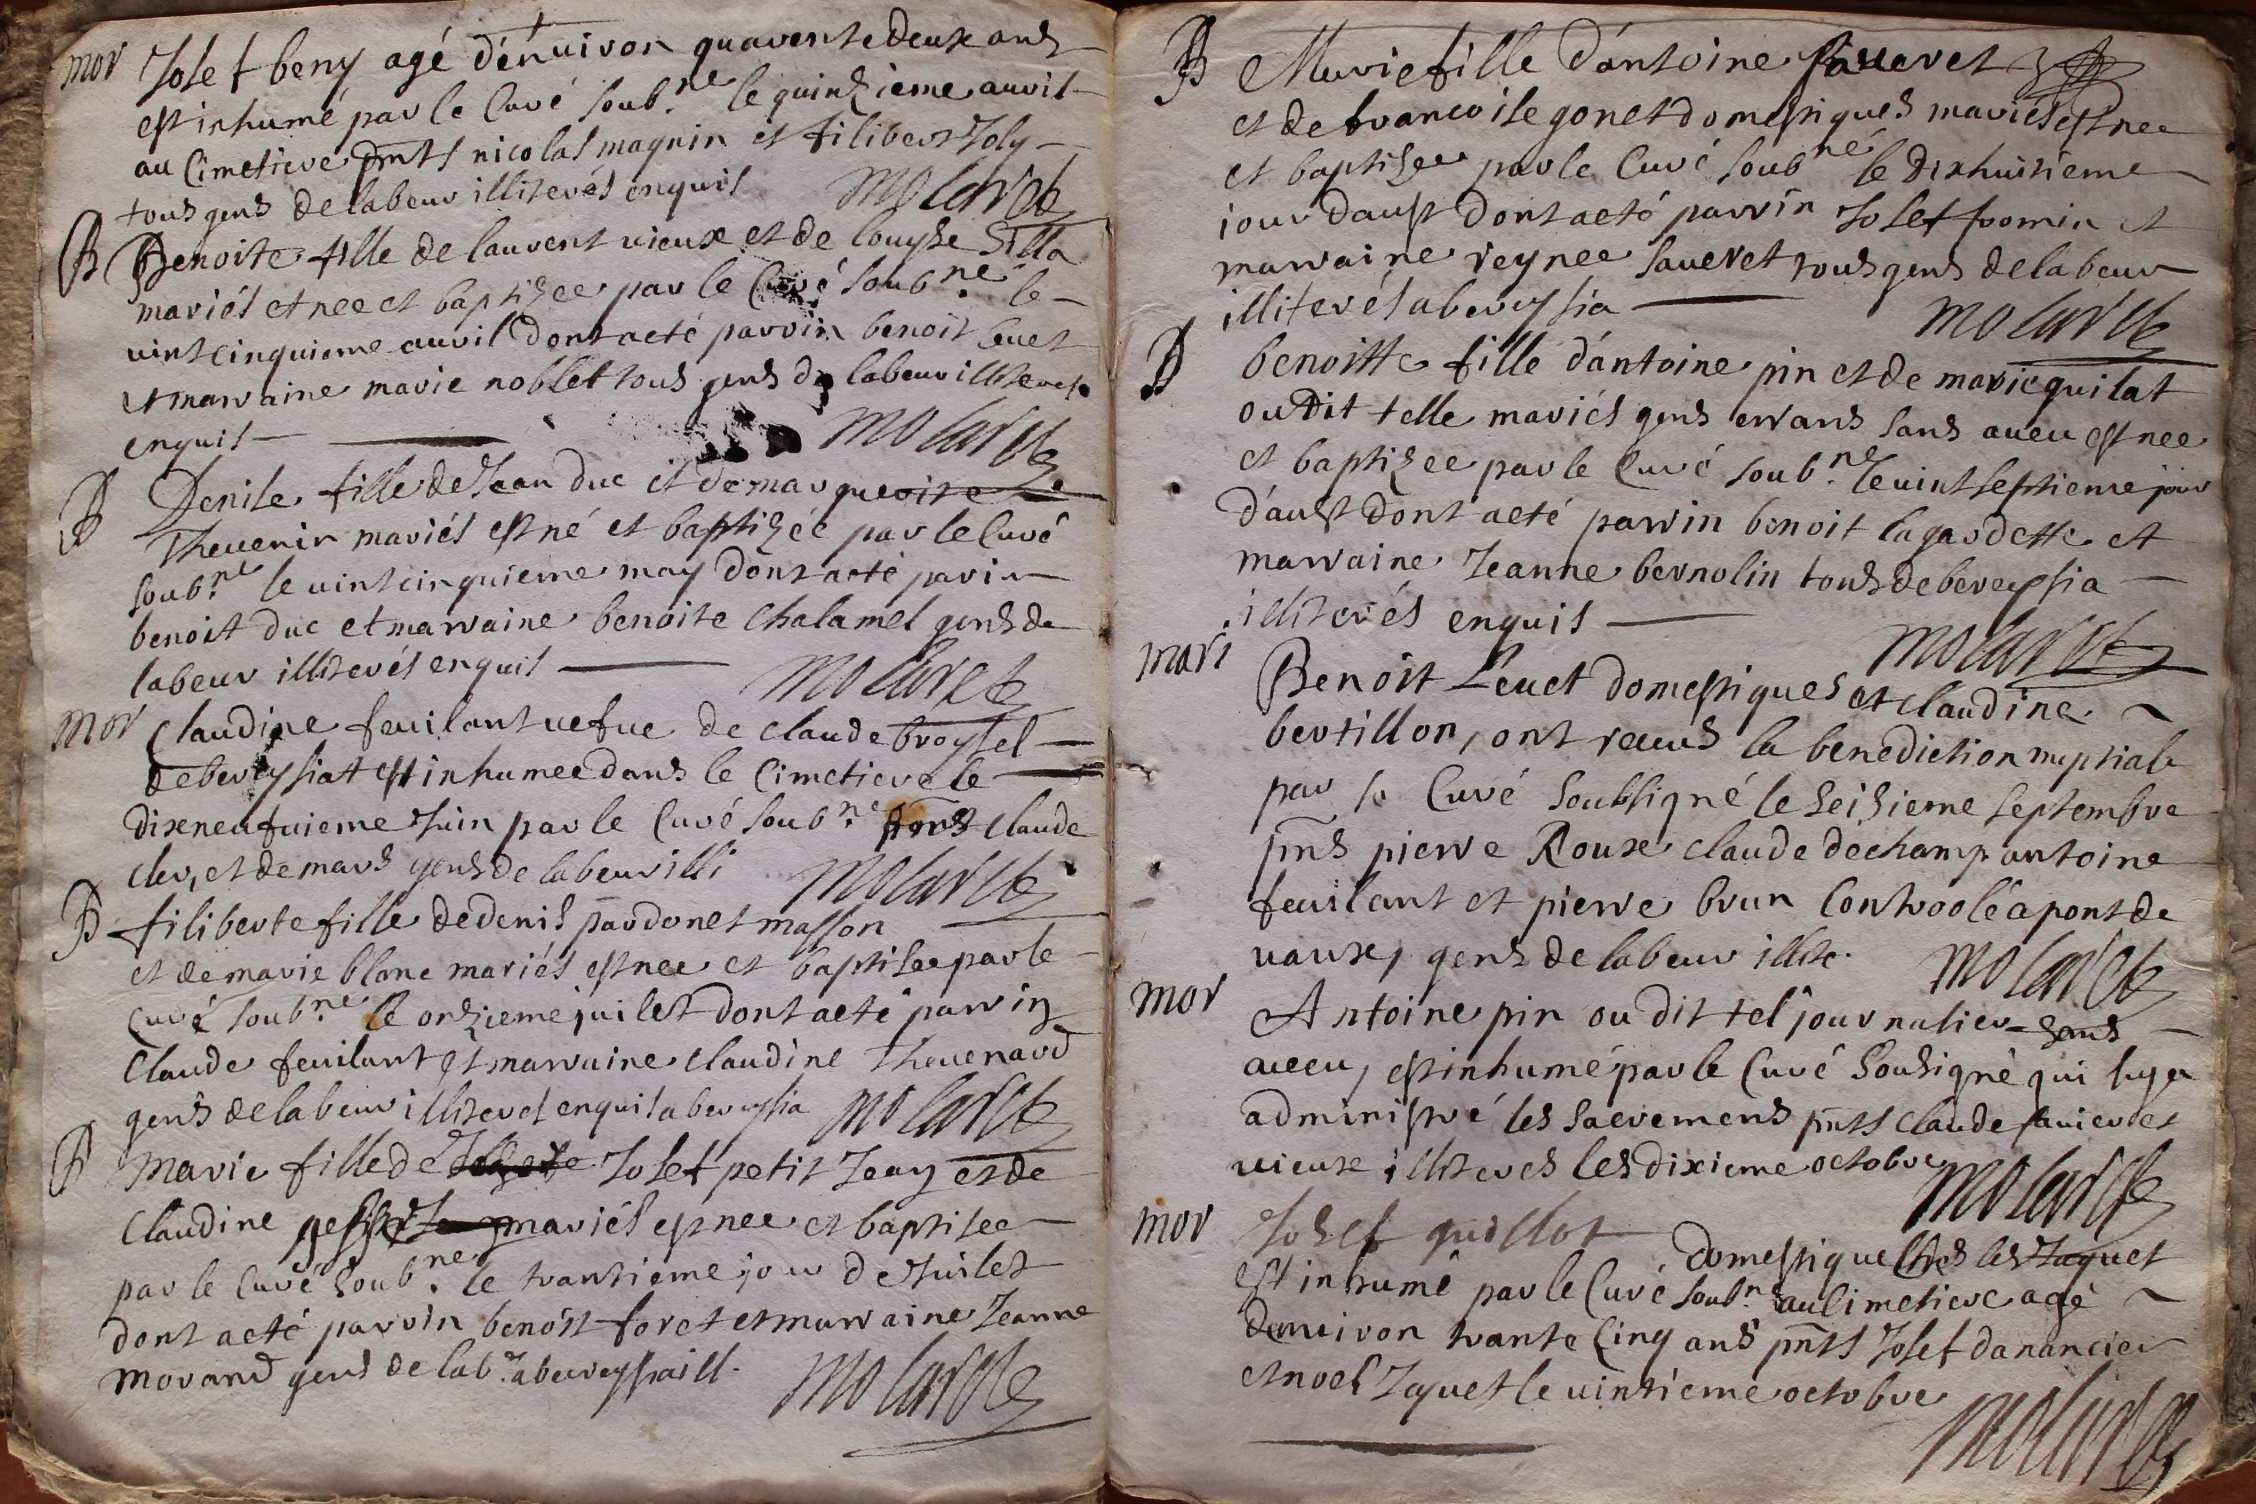 mor Josef beny agé dénuiron quarente deux ans
est inhumé par le Curé soub.ne le quinzieme auril
au Cimetiere pnts nicolas magnin et filibert Joly
tous gens de labeur illiterés enquis Molaret
B Benoite fille de laurent uieux et de louyse
mariés et nee et baptizee par le Curé soub.ne le
uint cinquieme auril dont acté parrin benoit leuet
et marraine marie noblet tous gens de labeur illiteres
enquis Molaret
B Denise fille de Jean duc et de marguerite
Theuenin mariés est né et baptizée par le Curé
soub.ne le uint cinquieme may dont acté parin
benoit duc et marraine benoite chalamel gens de
labeur illiterés enquis Molaret
mor Claudine feuilant uefue de Claude broyssel
de bereysiat est inhumee dans le Cimetiere le
dixneufuieme Juin par le Curé soub.ne pnts Claude
cler, et demars gens de labeur illi Molaret
B filiberte fille de denis pardonet masson
et de marie blanc mariés est nee et baptisee par le
Curé soub.ne le onzieme juilet dont acté parrin
Claude feuilant et marraine Claudine Theuenard
gens de labeur illiteres enquis a bereysia Molaret
B Marie fille de Josef petit Jean et de
Claudine mariés est nee et baptisee
par le Curé soub.ne le trantieme jour de Juilet
dont acté parrin benoist foret et marraine Jeanne
Morand gens de lab.r a bereyssia ill. Molaret
B Marie fille d'antoine saueret
et de francoise gonet domestiques mariés est nee
et baptisee par le Curé soub.ne le dixhuitieme
jour daust dont acté parrin Josef fromin et
marraine reynee saueret tous gens de labeur
illiterés a bereysia Molaret
B benoitte fille d'antoine pin et de marie quilat
ou dit telle mariés gens errans sans aueu est nee
et baptizee par le Curé soub.ne le uint septieme jour
d'aust dont acté parrin benoit lagardette et
marraine Jeanne bernolin tous de bereysia
illiterés enquis Molaret
mari Benoit Leuet domestiques et Claudine
bertillon, ont receus la benediction nuptiale
par le Curé soubsigné le seizieme septembre
pnts pierre Roux claude dechamp antoine
feuilant et pierre brun Controolé a pont de
uaux, gens de labeur illite. Molaret
mor Antoine pin ou dit tel journalier sans
aueu, est inhumé par le Curé sousigné qui luy a
administré les sacremens pnts Claude et
uieux illiteres les dixieme octobre Molaret
mor Josef guillot domestique Ches les Jaquet
est inhumé par le Curé soub.ne au Cimetiere agé
denuiron trante Cinq ans pnts Josef danancier
et noel Jaquet le uintieme octobre Molaret